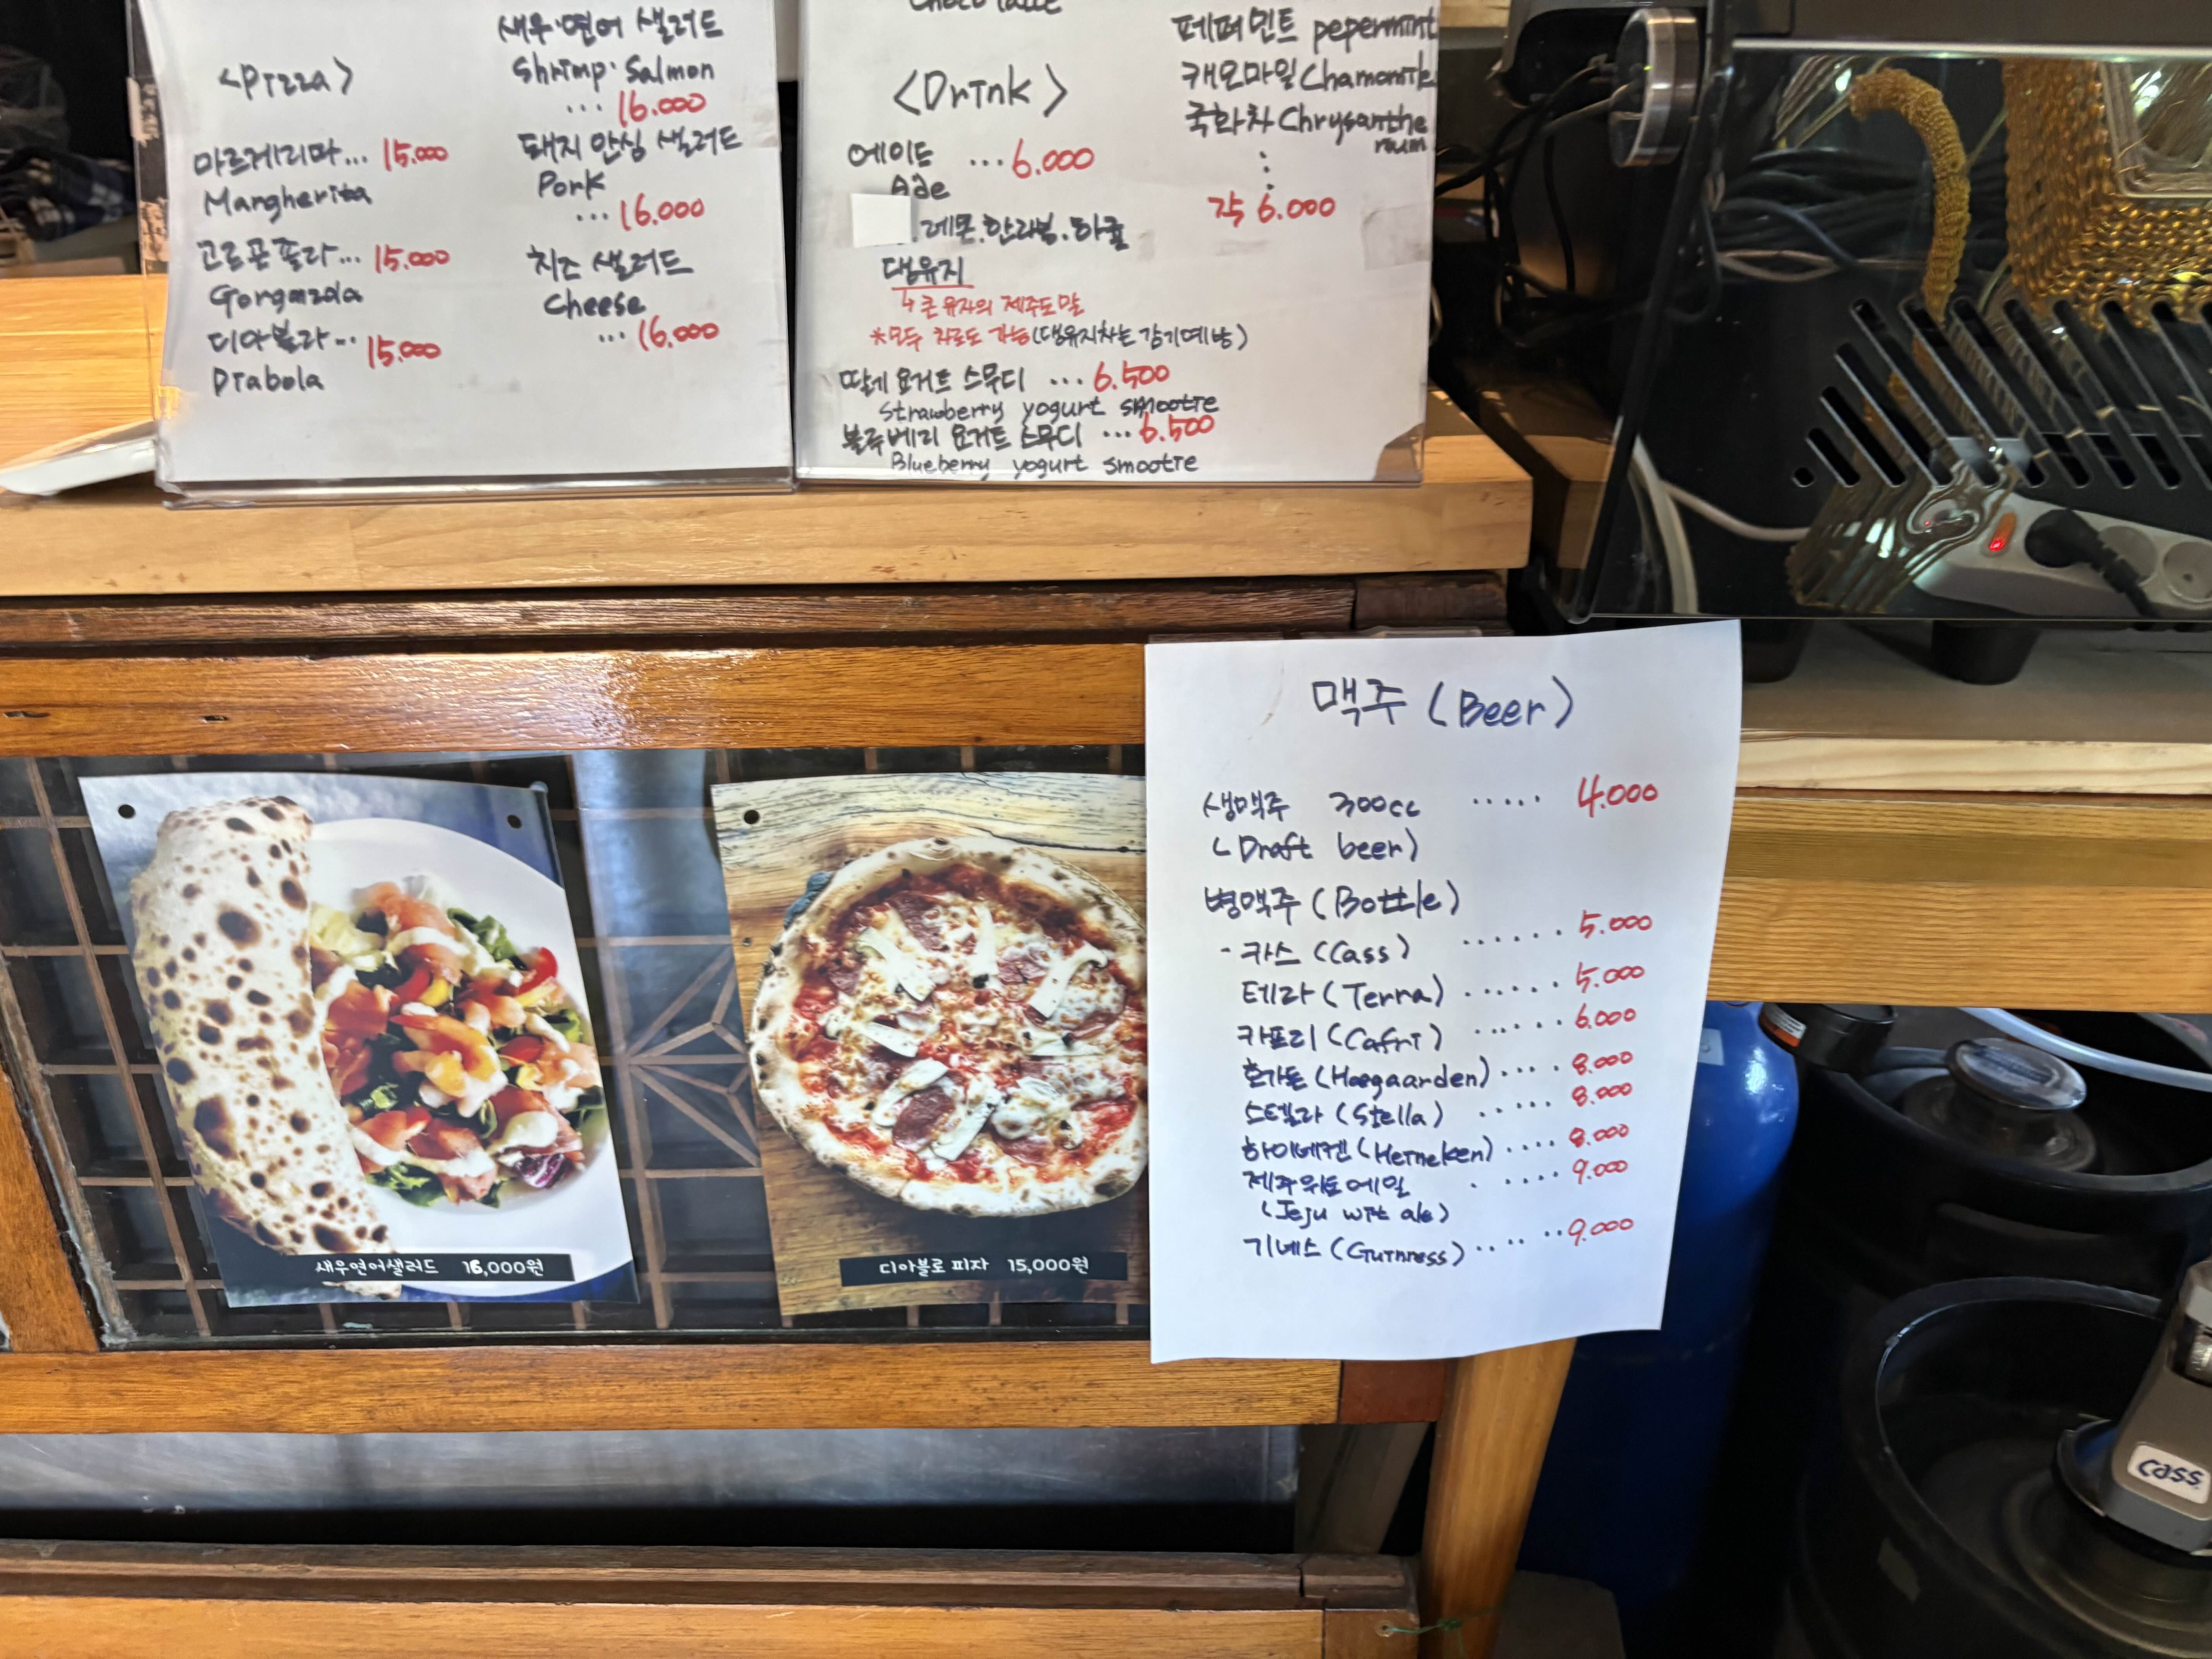 <Pizza>
마르게리따... 15.000
Margherita
고르곤졸라... 15.000
디아볼라... 15.000
Diabola
새우·연어 샐러드
Shrimp·Salmon
... 16.000
돼지 안심 샐러드
Pork
... 16.000
치즈 샐러드
Cheese
... 16.000
<Drink>
에이드 ... 6.000
Ade
.레몬.한라봉.
댕유지
↳큰 유자의 제주도 말
*모두 차로도 가능(댕유지차는 감기예방)
딸기 요거트 스무디 ... 6.500
Strawberry yogurt smootie
블루베리 요거트 스무디 ... 6.500
Blueberry yogurt smootie
페퍼민트 pepermint
캐모마일 Chamomile
국화차 Chrysanthe
mum
각 6.000
맥주 (Beer)
생맥주 300cc ..... 4.000
(Draft beer)
병맥주 (Bottle)
- 카스 (Cass) ...... 5.000
테라 (Terra) ...... 5.000
카프리 (Cafri) ...... 6.000
호가든 (Hoegaarden) .... 8.000
스텔라 (Stella) ..... 8.000
하이네켄 (Heineken) .... 8.000
제주위트에일 . .... 9.000
(Jeju wit ale)
기네스 (Guinness) .... ..9.000
새우연어샐러드 16,000원
디아볼로 피자 15,000원
cass